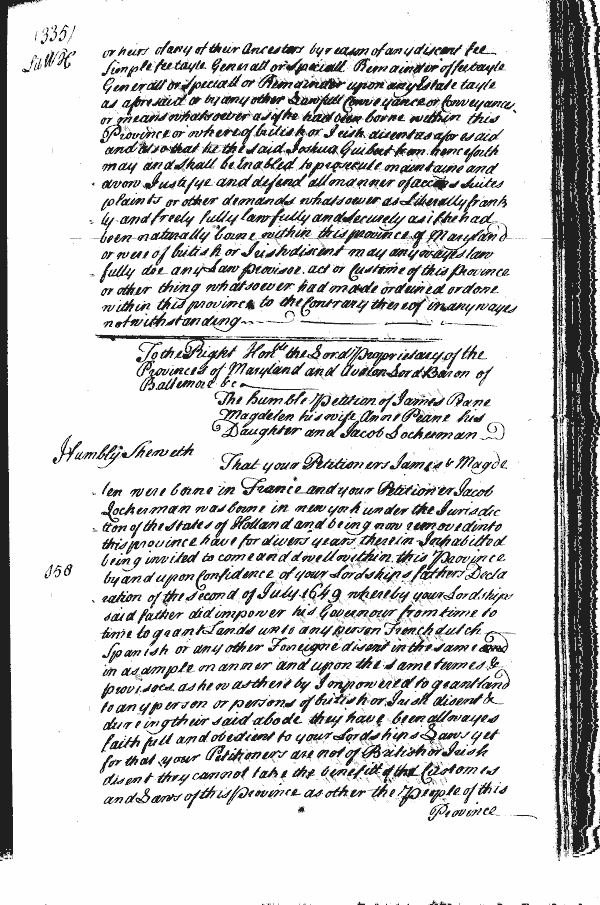 (335)
Lib W H
or heirs of any of their Ancestors by reason of any discent fee
Simple fee tayle Generall or Speciall Remainder of fee tayle
Generall or Speciall or Remainder upon any Estate tayle
as aforesaid or by any other Lawfull Conveyance or Conveyances
or means whatsoever as if he had been borne within this
Province or where of british or Irish disent as aforesaid
and also that he the said Joshua Guibert from henceforth
may and shall be Enabled to prosecute maintaine and
avow Justifye and defend all manner of accons Suites
plaints or other demands whatsoever as Liberally frank
ly and freely fully lawfully and Securely as if he had
been naturally borne within this province of Maryland
or were of british or Irish discent may any wayes law
fully doe any Law provisoe act or Custome of this Province
or other thing whatsoever had made ordeined or done
within this province to the Contrary thereof in any wayes
notwithstanding
To the Right Honble the Lord Proprietary of the
Provinces of Maryland and Avalon Lord Baron of
Baltemore &c
The humble Petition of James Pane
Magdelen his wife Anne Peane his
Daughter and Jacob Lockerman
Humbly Sheweth
That your Petitioners James & Magde
len were borne in France and your Petitioner Jacob
Lockerman was borne in new york under the Jurisdic
tion of the States of Holland and being now removed into
this province have for divers years therein Inhabitted
being invited to come and dwell within this Province
by and upon Confidence of your Lordships fathers Decla
358
ration of the second of July 1649 whereby your Lordships
said father did impower his Governour from time to
time to grant Lands unto any person French dutch
Spanish or any other Foreigne disent in the same and
in as ample manner and upon the same termes &
provisoes as he was thereby Impowered to grant land
to any person or persons of british or Irish disent &
dureing their said abode they have been allwayes
faithfull and obedient to your Lordships Laws yet
for that your Petitioners are not of British or Irish
disent they cannot take the benefit of the Customes
and Laws of this Province as other the People of this
Province